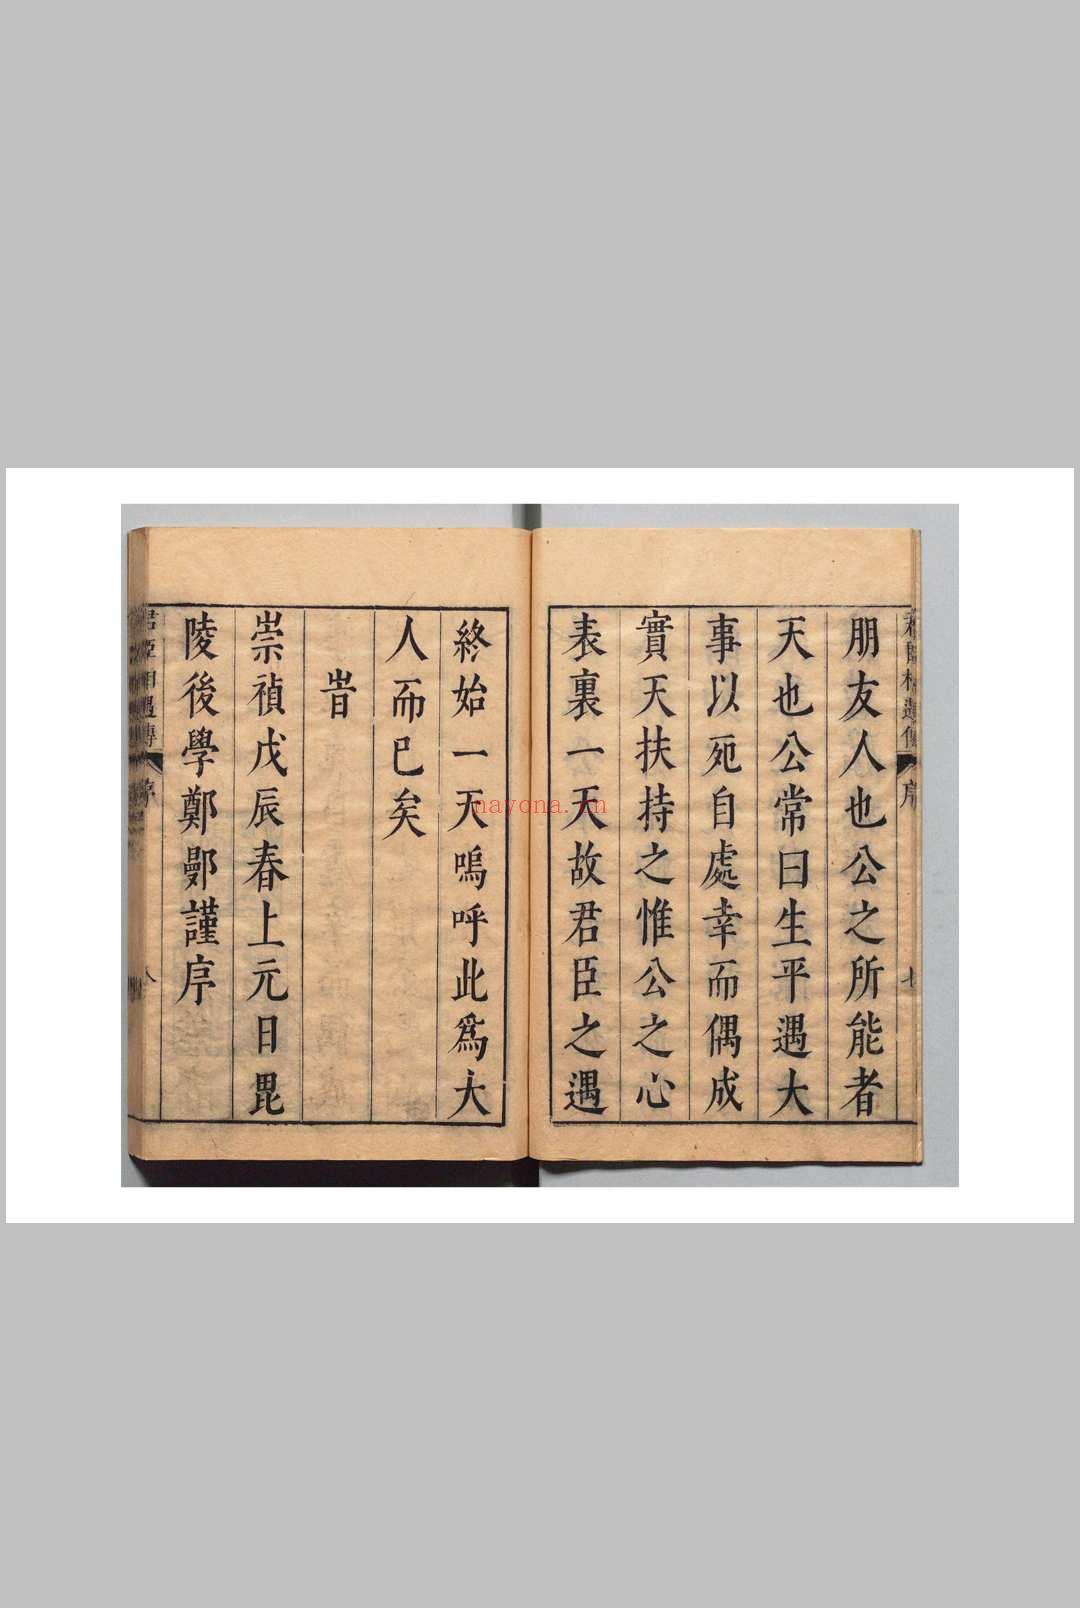 朋友人也公之所能者
天也公常曰生平遇大
事以死自處幸而偶成
實天扶持之惟公之心
表裏一天故君臣之遇
終始一天嗚呼此爲大
人而已矣
旹
崇禎戊辰春上元日毘
陵後學鄭鄤謹序
序
七
君臣相遇傳
序
八
nayona.cn